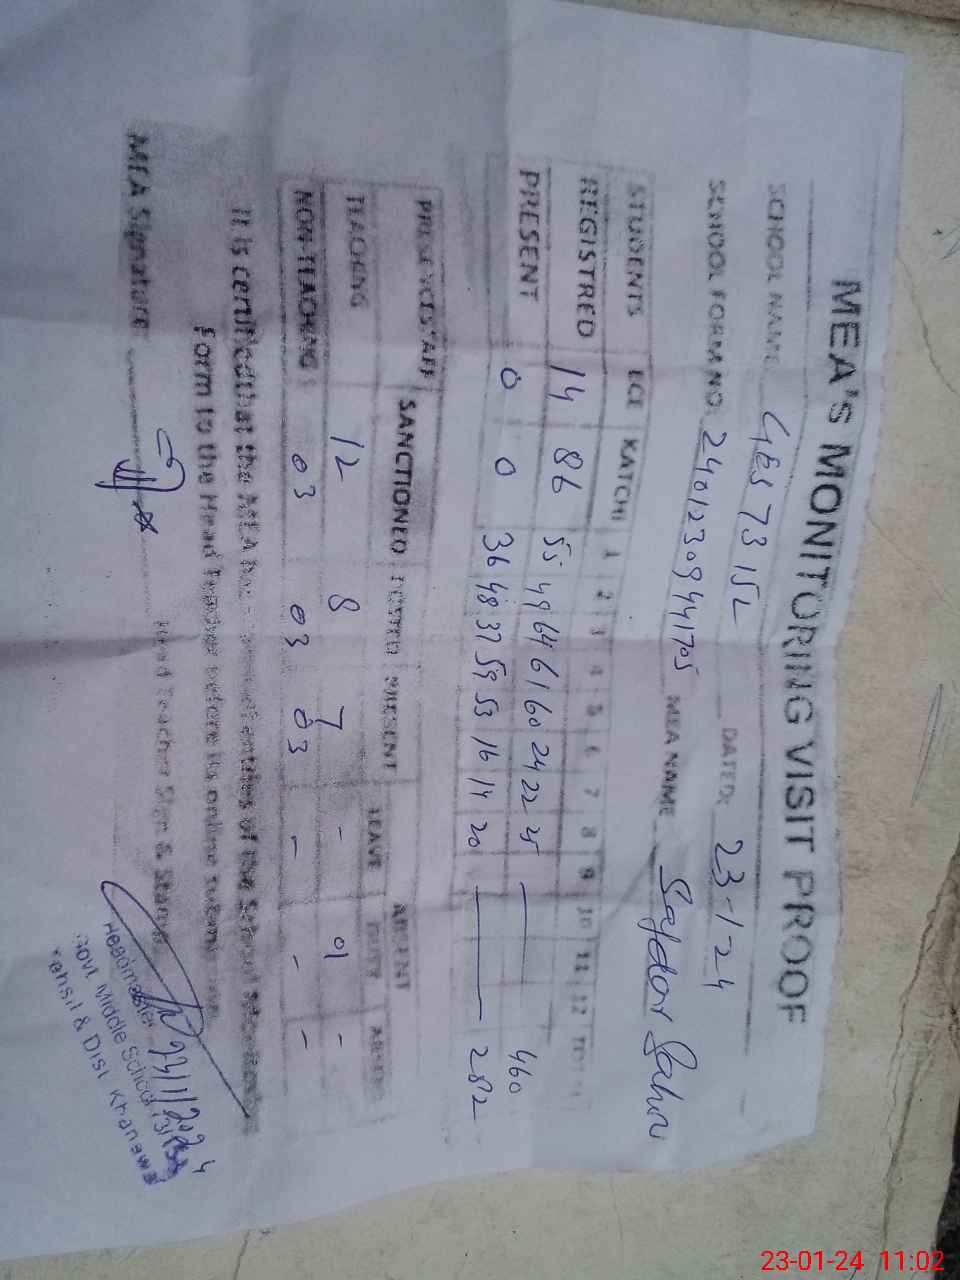 MEA'S MONITORING VISIT PROOF
SCHOOL NAME GES 73 15L DATED: 23-1-24
SCHOOL FORM NO. 24012309441705 MEA NAME Safdar
STUDENTS ECE KATCHI 1 2 3 4 5 6 7 8 9 10 11 12 TOTAL
REGISTRED 14 86 55 49 64 61 60 24 22 25 460
PRESENT 0 0 36 48 37 59 53 16 14 20 282
PRESENT STAFF SANCTIONED POSTED PRESENT ABSENT
LEAVE DUTY ABSENT
TEACHING 12 8 7 - 01 -
NON-TEACHING 03 03 03 - - -
It is certified that the MEA has entries of the School
form to the Head Teacher before its online
MEA Signature Head Teacher Sign & Stamp
23/1/2024
Headmaster
Govt. Middle School 73/15L
Tehsil & Dist. Khanewal
23-01-24 11:02